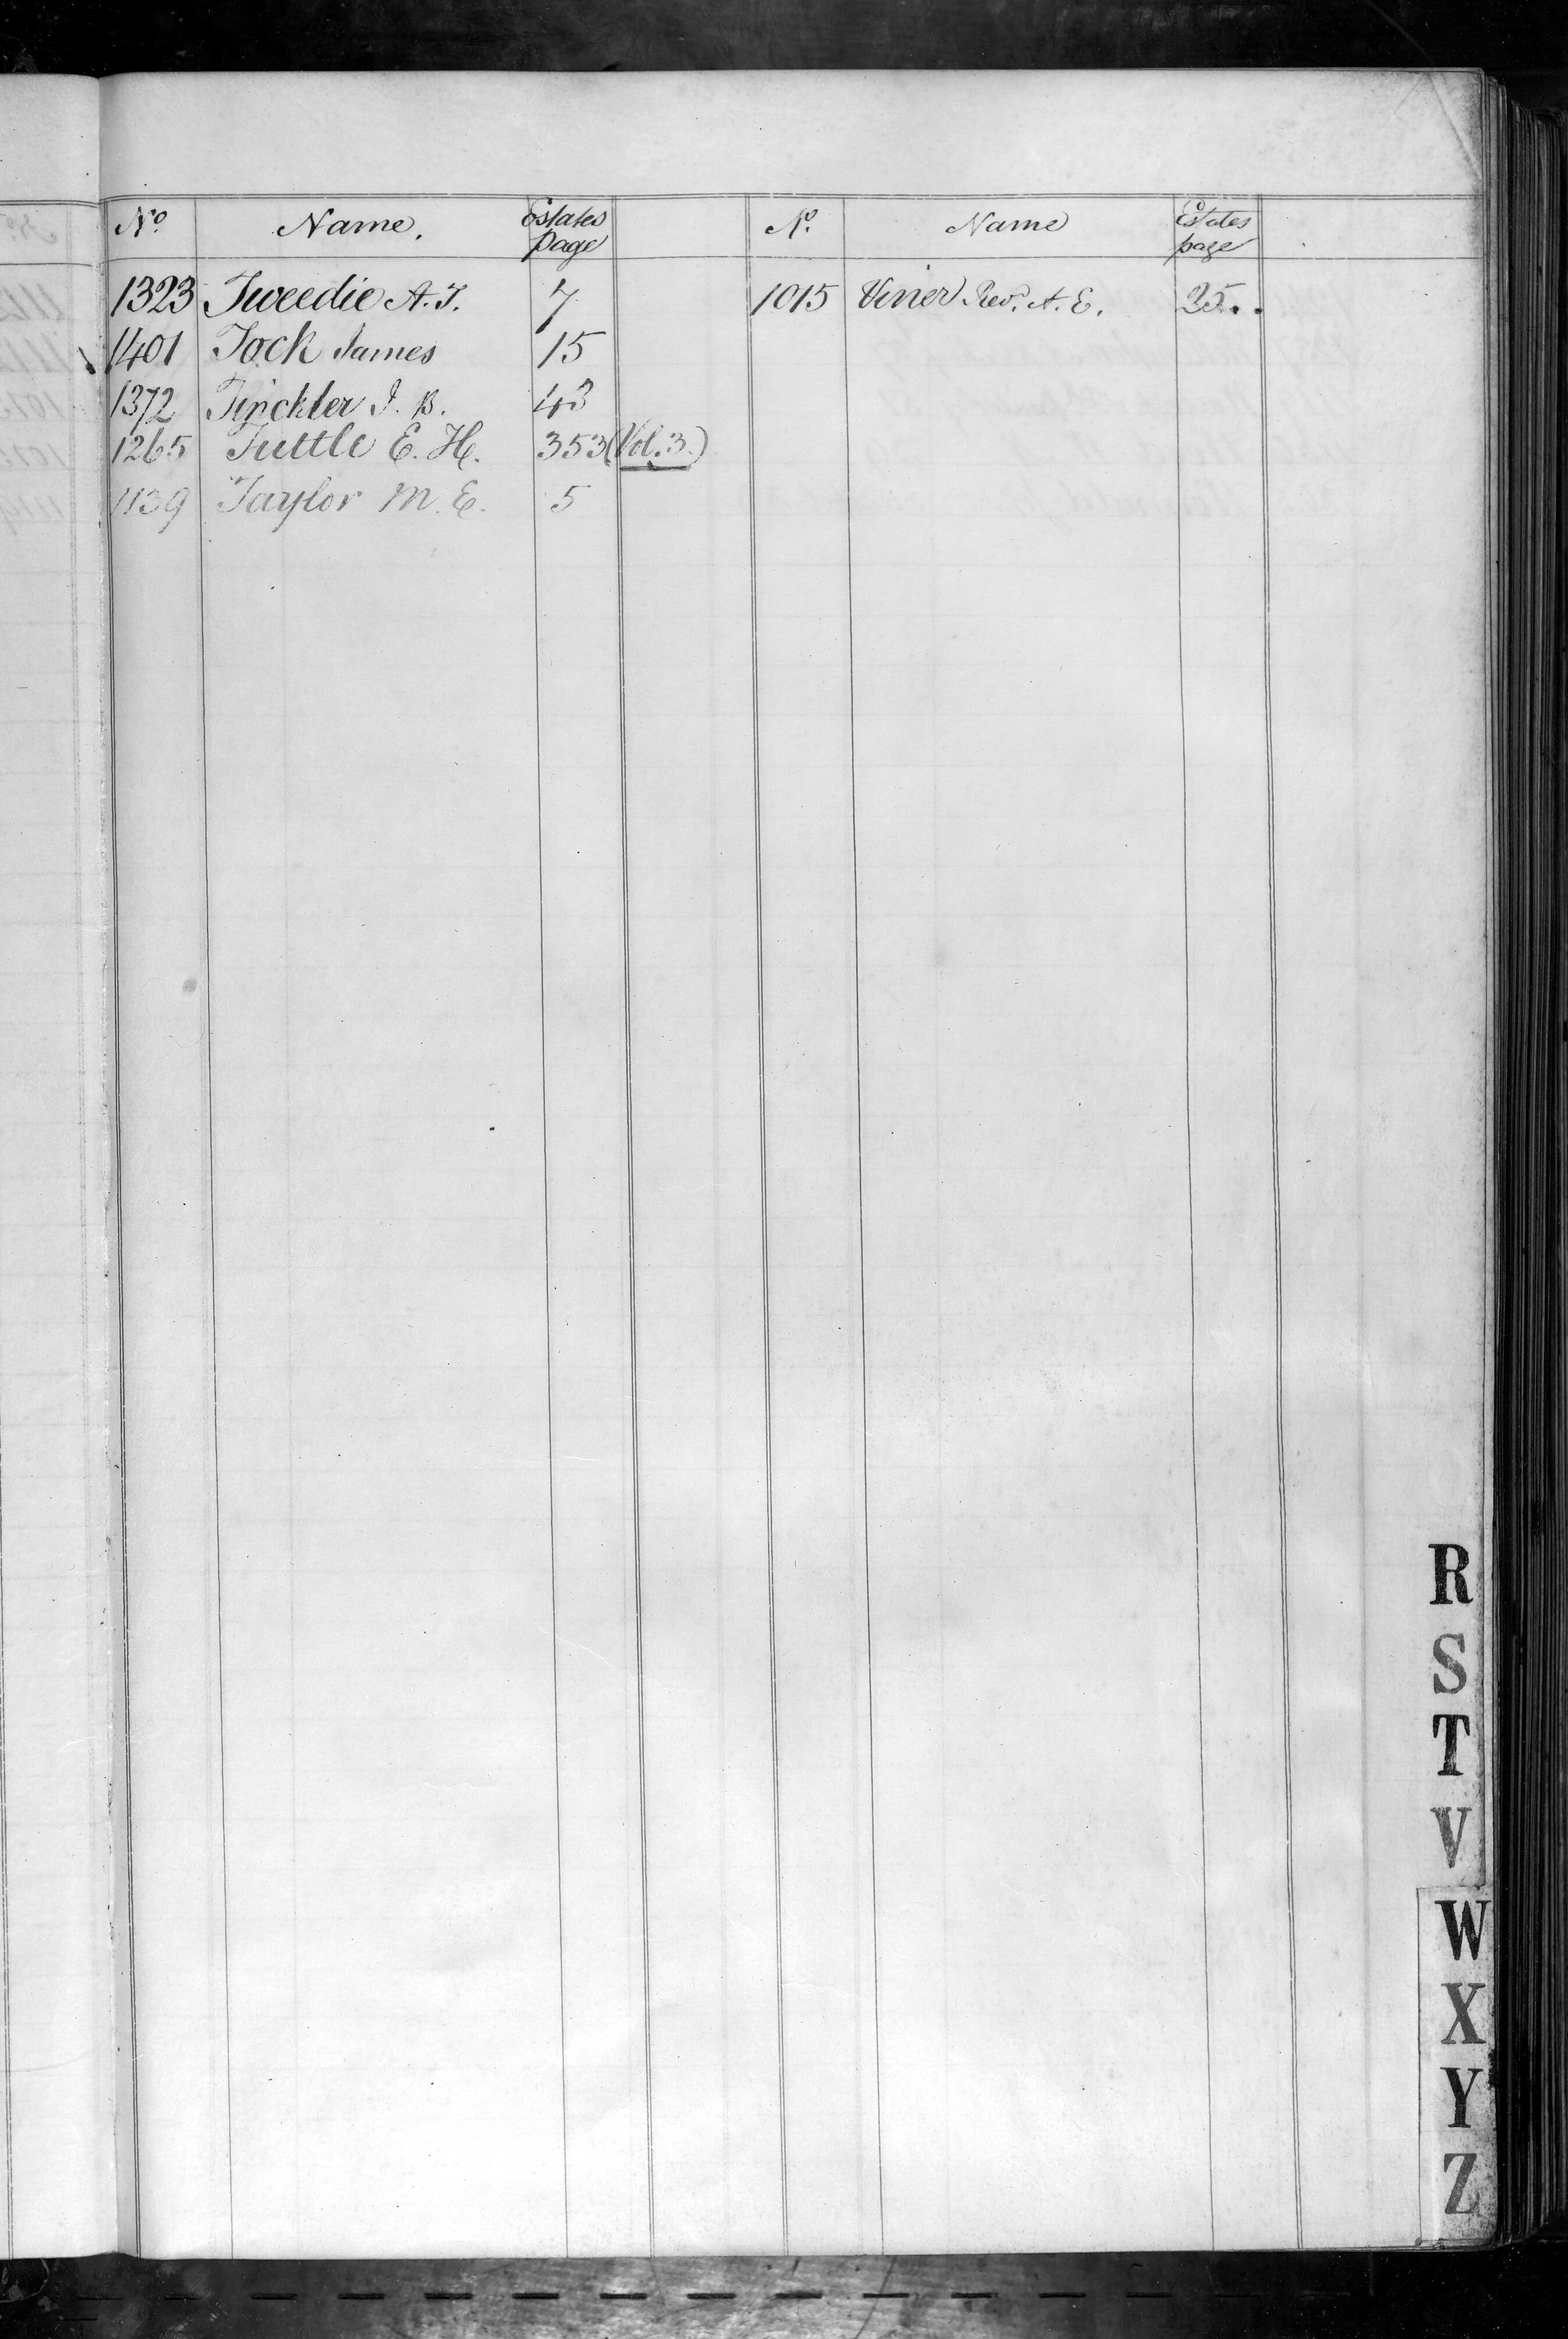 No. Name. Estates page No. Name Estates page
1323 Tweedie A. T. 7 1015 Viner Rev. A. E. 25..
1401 Tock James 15
1372 Tinckler J. B. 43
1265 Tuttle E. H. 353 (Vol. 3.)
1139 Taylor M. E. 5
R
S
T
V
W
X
Y
Z